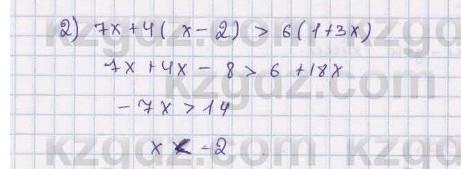 2) 7x+4(x-2) > 6(1+3x)
7x+4x-8 > 6+18x
-7x > 14
x < -2
kzgdz.com
kzgdz.com
kzgdz.com